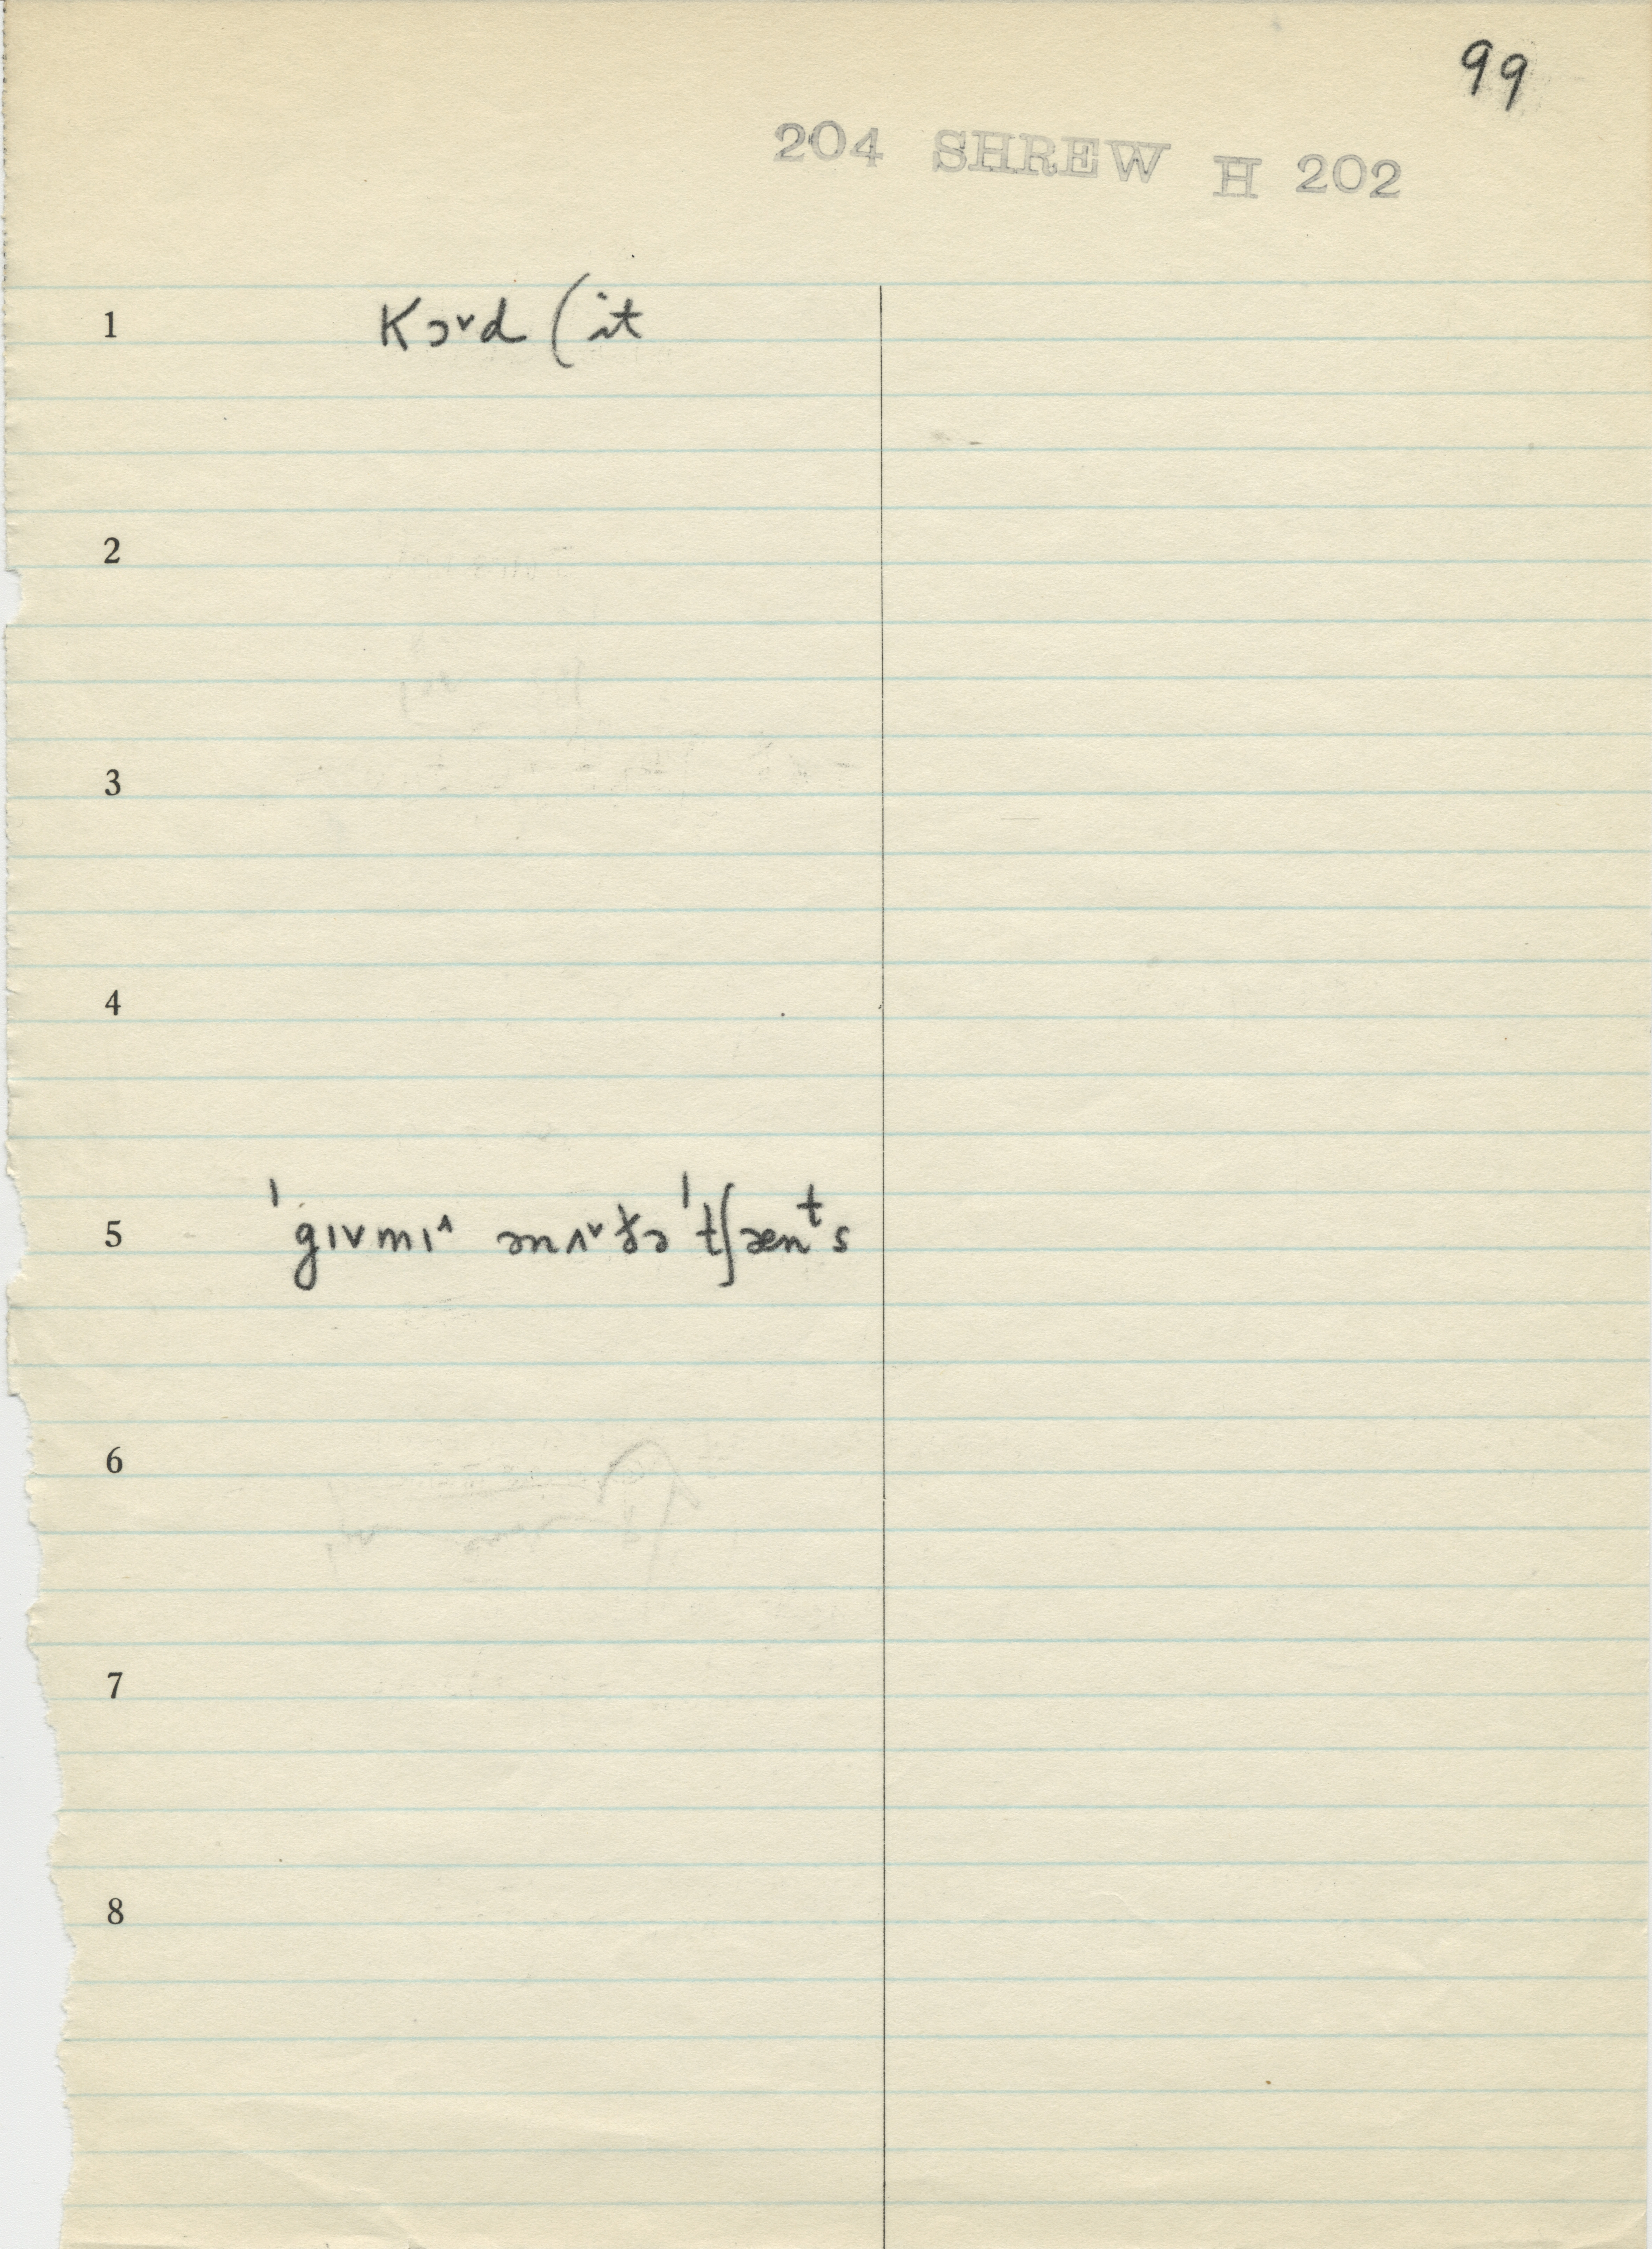 99
204 SHREW H 202
1 Kɔ˅d (it
2
3
4
5 ˈgɪvmɪ^ ənʌ˅ðə ˈtʃænᵗs
6
7
8